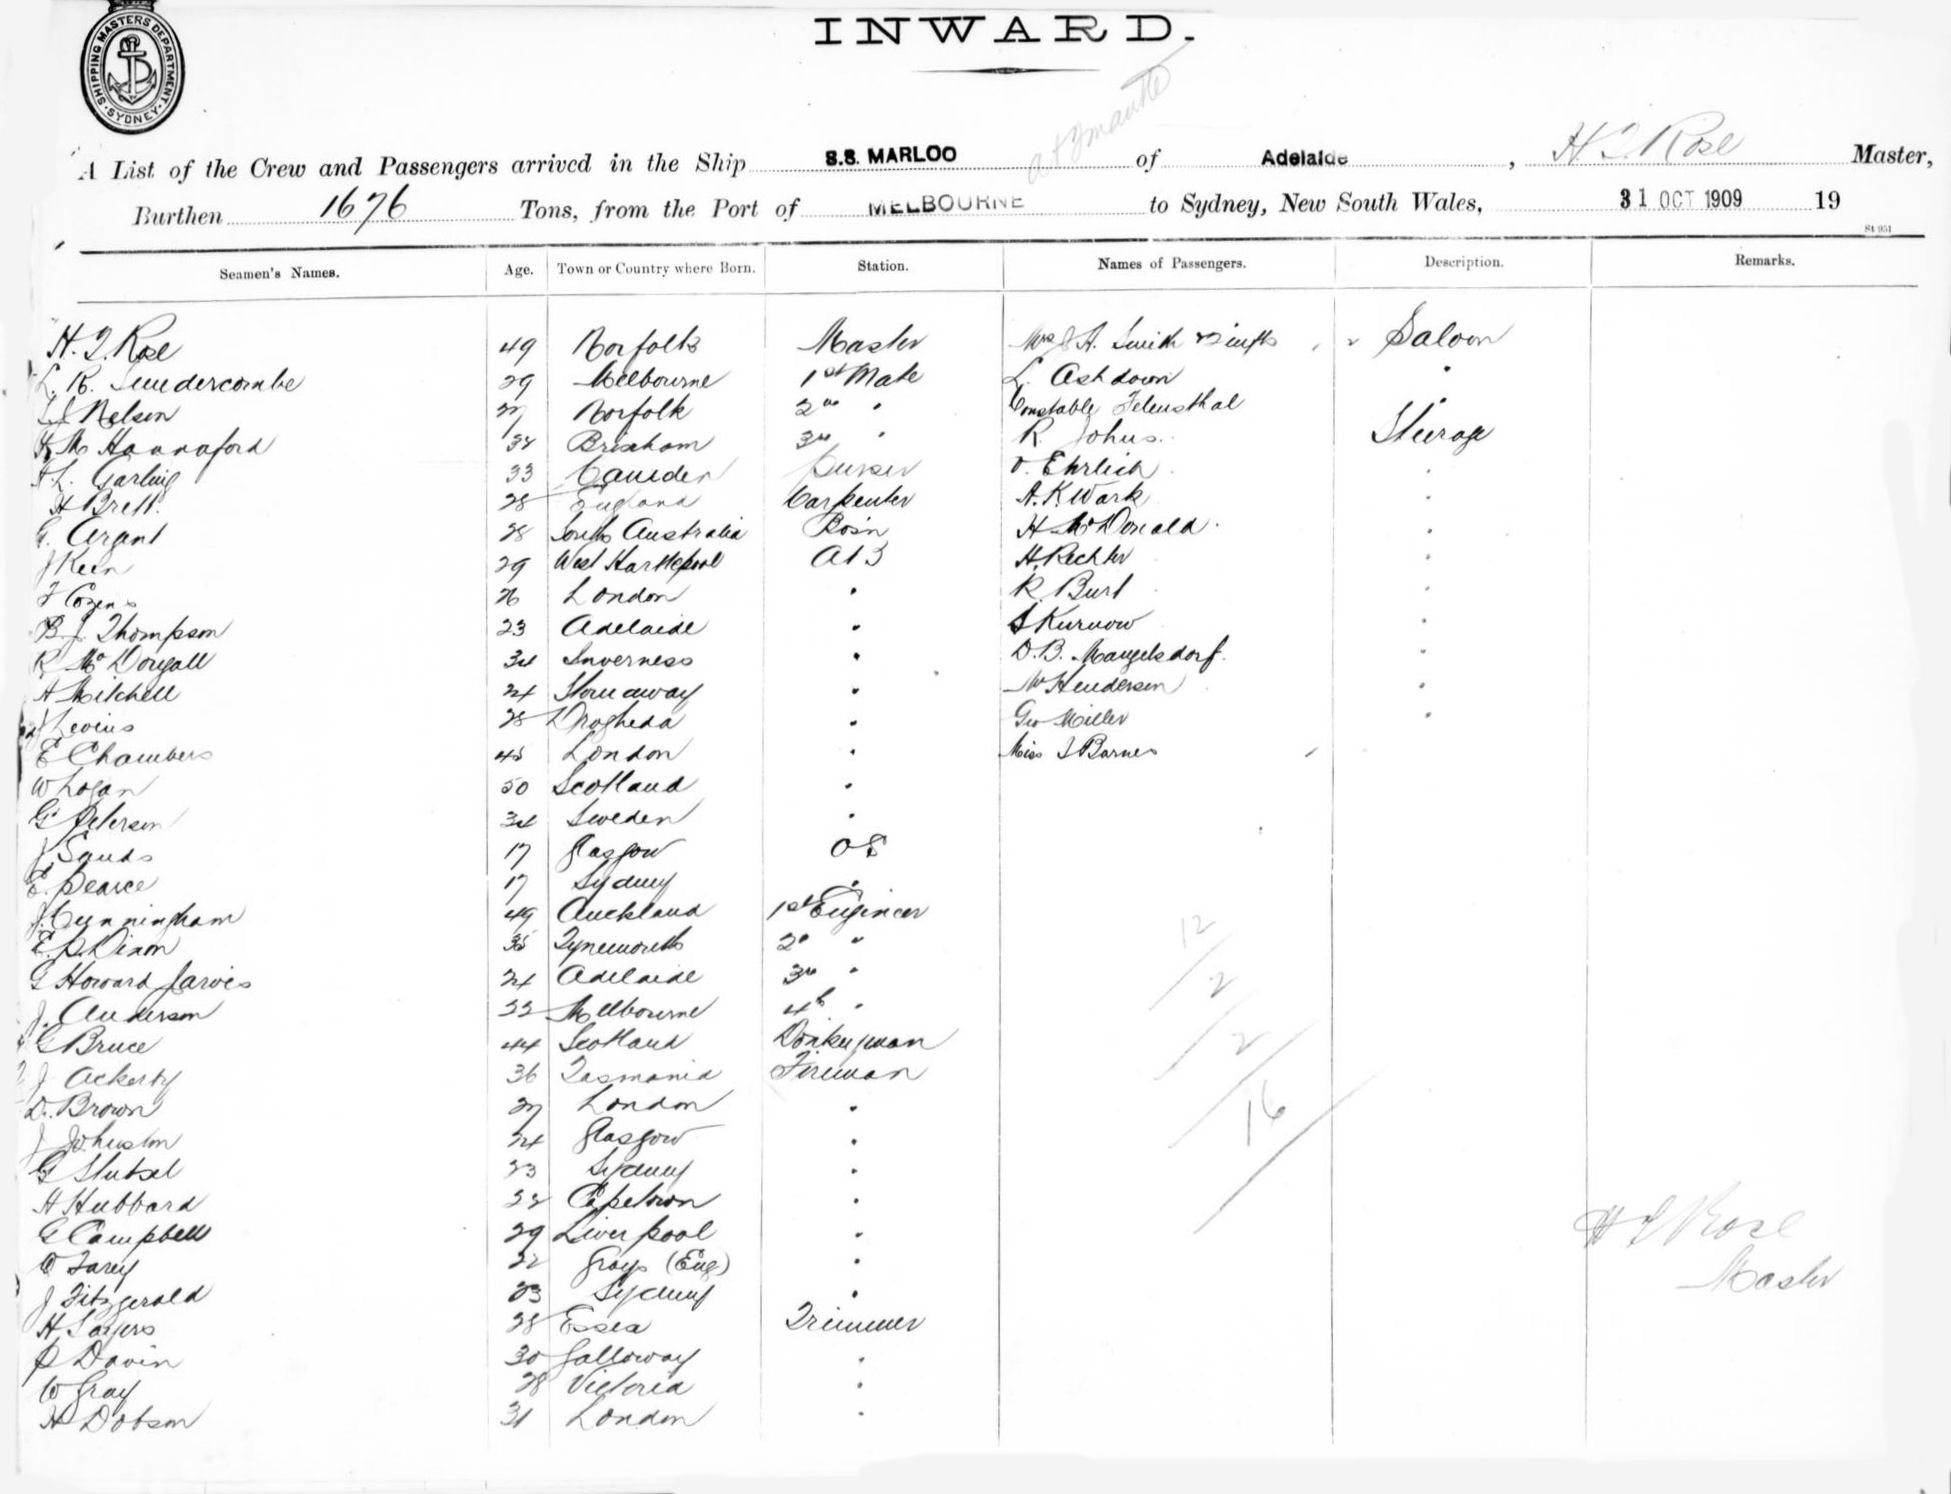 INWARD.
SHIPPING MASTERS DEPARTMENT
SYDNEY
A List of the Crew and Passengers arrived in the Ship S.S. MARLOO of Adelaide, H Rose Master,
Burthen 1676 Tons, from the Port of MELBOURNE to Sydney, New South Wales, 31 OCT 1909 19
St 951
Seamen's Names. Age. Town or Country where Born. Station. Names of Passengers. Description. Remarks.
H. J. Rose 49 Norfolk Master Mrs J A. Smith Saloon
L. R. Lundercombe 29 Melbourne 1st Mate L. Ashdown "
Nelson 27 Norfolk 2nd " Constable "
Hannaford 38 Brixham 3rd " R. Johns. Steerage
A. L. Garling 33 Camden Purser O. Ehrlich "
H Brett. 28 England Carpenter A. K. Wark "
G. Argent 28 South Australia Bos'n H McDonald "
J Keen 29 West Hartlepool A B H. Rechter "
F Cozens 26 London " R. Burt "
B. J. Thompson 23 Adelaide " S Kurnow "
R McDougall 34 Inverness " D. B. Mangelsdorf. "
A Mitchell 24 Stornaway " Mr Henderson "
J Levins 28 Drogheda " Geo Miller "
E Chambers 45 London " Miss J Barnes
W Logan 50 Scotland "
G Peterson 34 Sweden "
J Sands 17 Glasgow O S
E. Pearce 17 Sydney "
J. Cunningham 49 Auckland 1st Engineer
E. S. Dixon 35 Tynemouth 2nd " 12
G Howard Jarvis 24 Adelaide 3rd " 2
J. Anderson 22 Melbourne 4th "
G Bruce 44 Scotland Donkeyman 2
J Ackerty 36 Tasmania Fireman
D. Brown 27 London " 16
J Johnston 24 Glasgow "
G Stutsel 23 Sydney "
H Hubbard 22 Capetown "
G Campbell 29 Liverpool " H J Rose
O Farey 22 Grays (Eng) " Master
J Fitzgerald 23 Sydney "
H Sayers 28 Essex Trimmer
P Davin 30 Galloway "
W Gray 28 Victoria "
H Dobson 31 London "